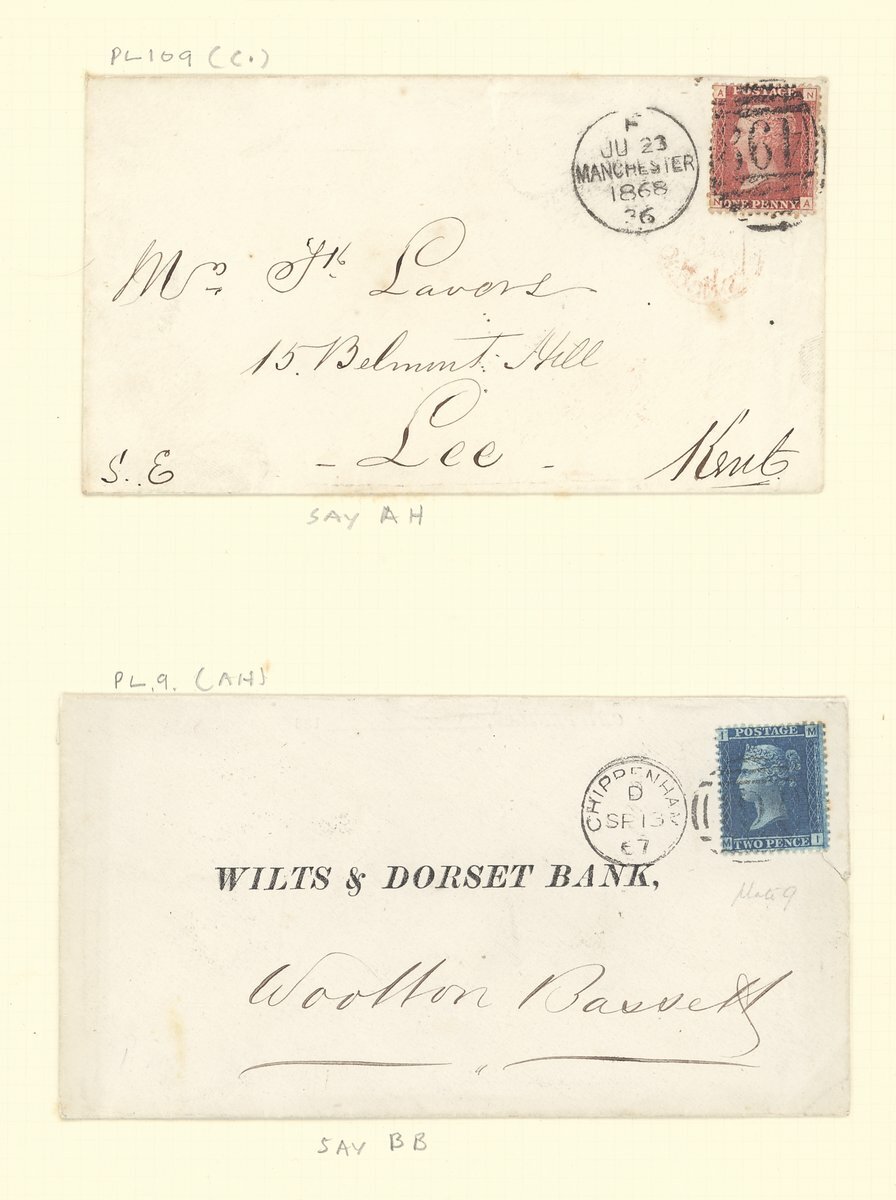 PL 109 (C.)
A POSTAGE N
361
N ONE PENNY A
F
JU 23
MANCHESTER
1868
36
Lavers
15. Belmont Hill
Lee
S. E
Kent
SAY AH
PL. 9. (AH)
I POSTAGE M
M TWO PENCE I
CHIPPENHAM
D
SP 13
67
WILTS & DORSET BANK,
Plate 9
Wootton Bassett
SAY BB